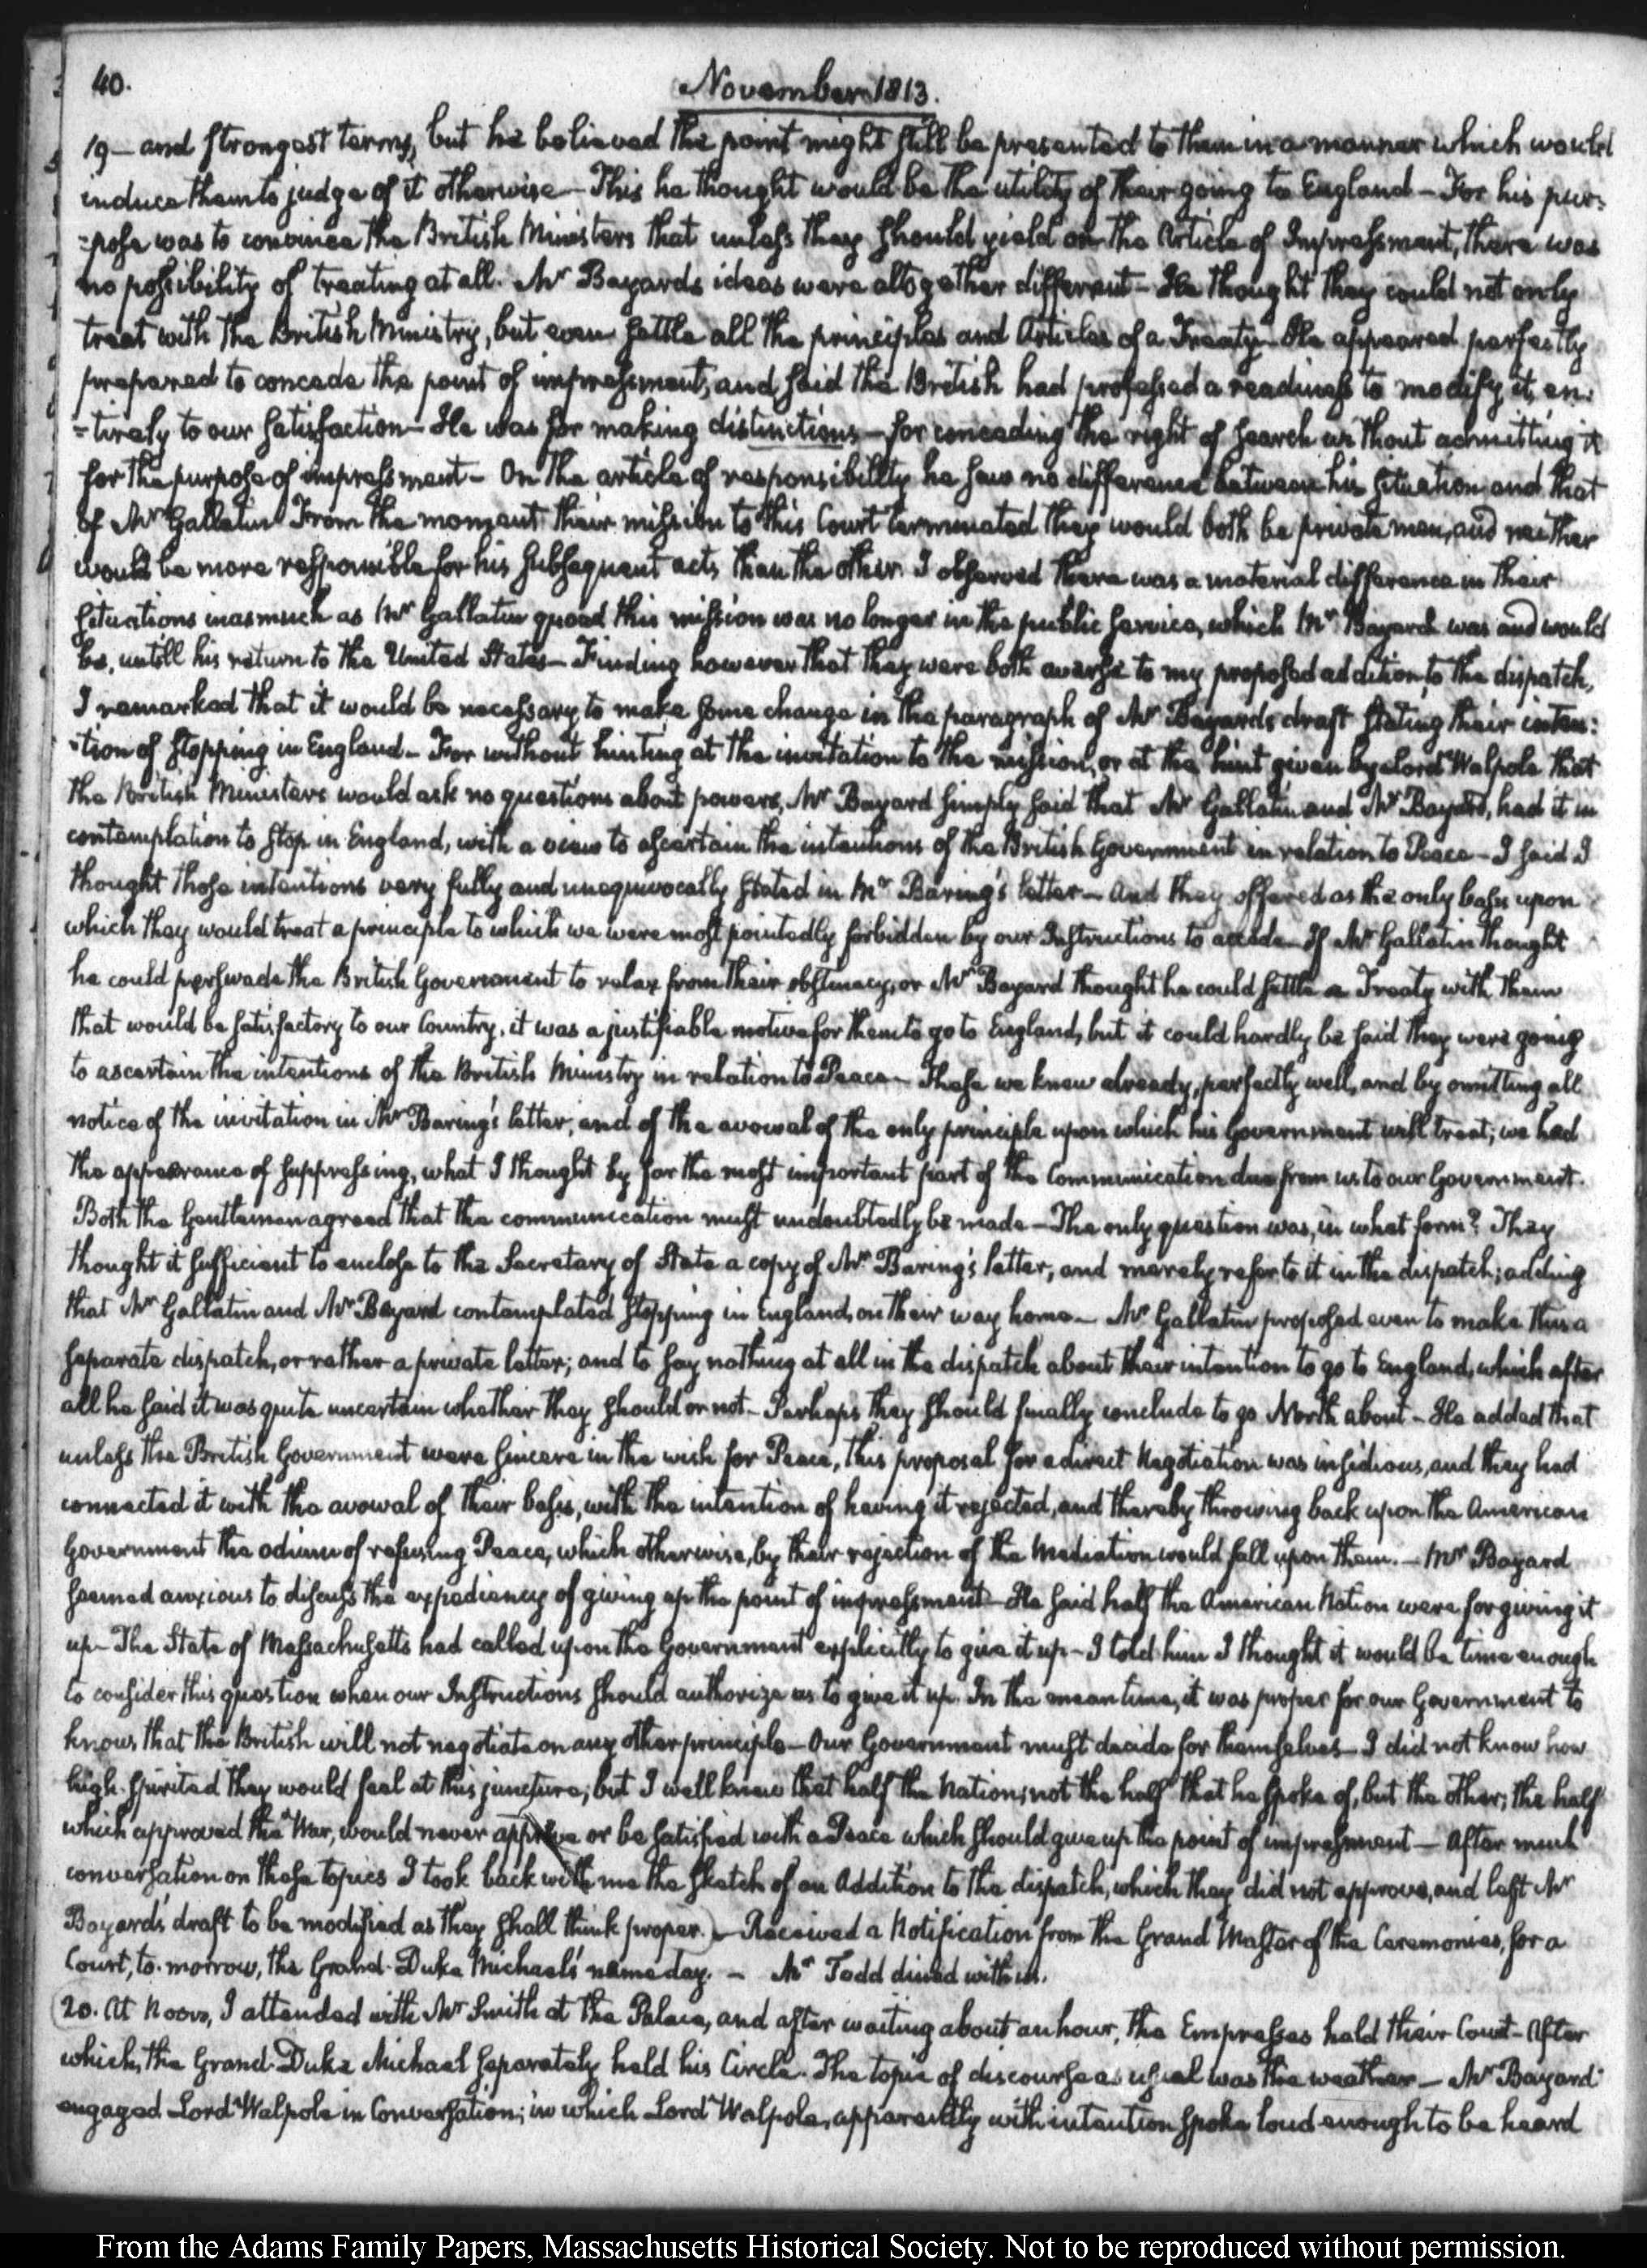 40.
November 1813.
19 — and strongest terms, but he believed the point might still be presented to them in a manner which would
induce them to judge of it otherwise — This he thought would be the utility of their going to England — For his pur-
-pose was to convince the British Ministers that unless they should yield on the Article of Impressment, there was
no possibility of treating at all. Mr Bayards ideas were altogether different — He thought they could not only
treat with the British Ministry, but even settle all the principles and Articles of a Treaty — He appeared perfectly
prepared to concede the point of impressment, and said the British had professed a readiness to modify it, en-
-tirely to our satisfaction — He was for making distinctions — for conceding the right of search without admitting it
for the purpose of impressment — On the article of responsibility he saw no difference between his situation and that
of Mr Gallatin From the moment their mission to this Court terminated they would both be private men, and neither
would be more responsible for his subsequent acts than the other. I observed there was a material difference in their
situations inasmuch as Mr Gallatin quoad this mission was no longer in the public service, which Mr Bayard was and would
be, untill his return to the United States — Finding however that they were both averse to my proposed addition to the dispatch,
I remarked that it would be necessary to make some change in the paragraph of Mr Bayards draft stating their inten-
-tion of stopping in England — For without hinting at the invitation to the mission, or at the hint given by Lord Walpole that
the British Ministers would ask no questions about powers, Mr Bayard simply said that Mr Gallatin and Mr Bayard, had it in
contemplation to stop in England, with a view to ascertain the intentions of the British Government in relation to Peace — I said I
thought those intentions very fully and unequivocally stated in Mr Baring's letter — and they offered as the only basis upon
which they would treat a principle to which we were most pointedly forbidden by our Instructions to accede — If Mr Gallatin thought
he could perswade the British Government to relax from their obstinacy, or Mr Bayard thought he could settle a Treaty with them
that would be satisfactory to our Country, it was a justifiable motive for them to go to England, but it could hardly be said they were going
to ascertain the intentions of the British Ministry in relation to Peace — These we knew already, perfectly well, and by omitting all
notice of the invitation in Mr Baring's letter, and of the avowal of the only principle upon which his Government will treat; we had
the appearance of suppressing, what I thought by far the most important part of the Communication due from us to our Government.
Both the Gentlemen agreed that the communication must undoubtedly be made — The only question was, in what form? They
thought it sufficient to enclose to the Secretary of State a copy of Mr Baring's letter, and merely refer to it in the dispatch; adding
that Mr Gallatin and Mr Bayard contemplated stopping in England, on their way home — Mr Gallatin proposed even to make this a
separate dispatch, or rather a private letter; and to say nothing at all in the dispatch about their intention to go to England, which after
all he said it was quite uncertain whether they should or not — Perhaps they should finally conclude to go North about — He added that
unless the British Government were sincere in the wish for Peace, this proposal for a direct Negotiation was insidious, and they had
connected it with the avowal of their basis, with the intention of having it rejected, and thereby throwing back upon the American
Government the odium of refusing Peace, which otherwise, by their rejection of the Mediation would fall upon them. — Mr Bayard
seemed anxious to discuss the expediency of giving up the point of impressment — He said half the American Nation were for giving it
up — The State of Massachusetts had called upon the Government explicitly to give it up — I told him I thought it would be time enough
to consider this question when our Instructions should authorize us to give it up. In the mean time, it was proper for our Government to
know, that the British will not negotiate on any other principle — Our Government must decide for themselves — I did not know how
high-spirited they would feel at this juncture; but I well knew that half the Nation; not the half that he spoke of, but the other; the half
which approved the War, would never approve or be satisfied with a Peace which should give up the point of impressment — After much
conversation on these topics I took back with me the sketch of an Addition to the dispatch, which they did not approve, and left Mr
Bayard's draft to be modified as they shall think proper.) — Received a Notification from the Grand Master of the Ceremonies, for a
Court, to-morrow, the Grand-Duke Michael's name day. — Mr Todd dined with us.
20. At Noon, I attended with Mr Smith at the Palace, and after waiting about an hour, the Empresses held their Court — After
which, the Grand-Duke Michael separately held his Circle. The topic of discourse as usual was the weather — Mr Bayard
engaged Lord Walpole in Conversation; in which Lord Walpole, apparently with intention spoke loud enough to be heard
From the Adams Family Papers, Massachusetts Historical Society. Not to be reproduced without permission.